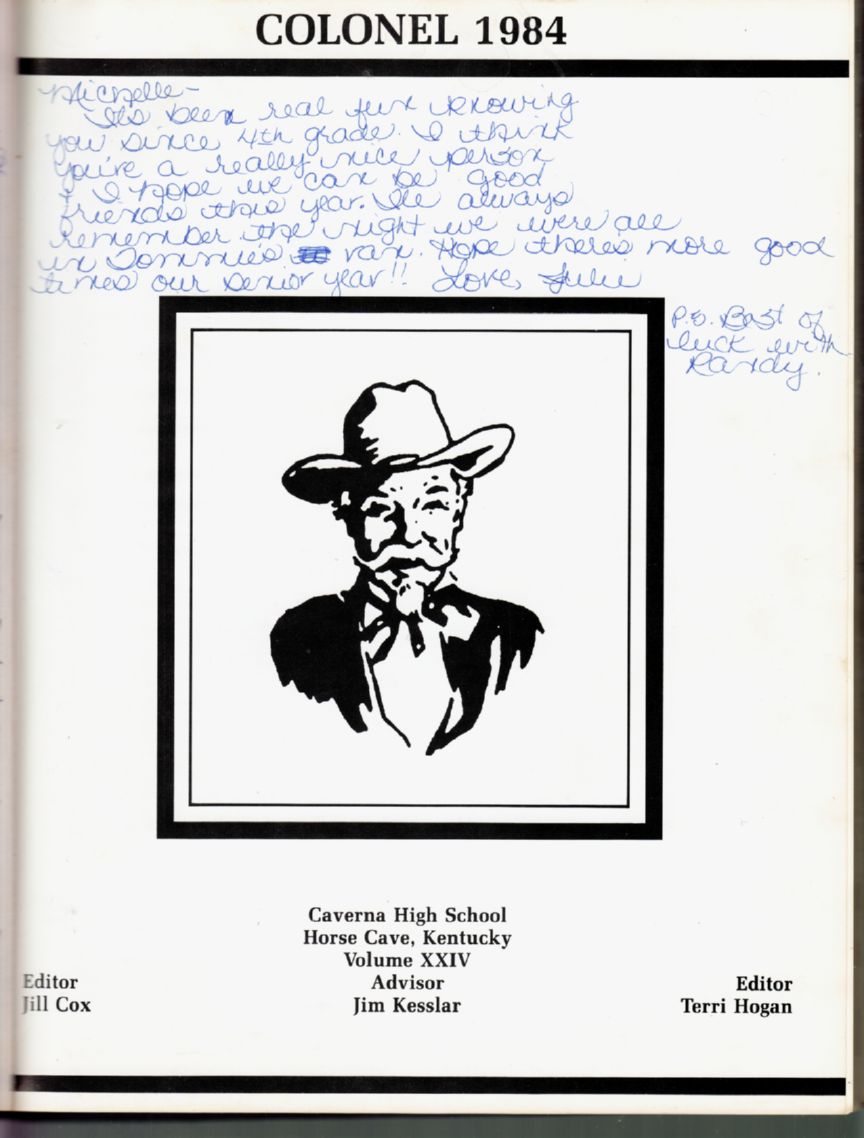 COLONEL 1984
Michelle-
Its been real fun knowing
you since 4th grade. I think
you're a really nice person
& I hope we can be good
friends this year. Ile always
remember the night we were all
in Tommies van. Hope theres more good
times our senior year!! Love, Julie
P.S. Best of
luck with
Randy.
Caverna High School
Horse Cave, Kentucky
Volume XXIV
Editor Advisor Editor
Jill Cox Jim Kesslar Terri Hogan